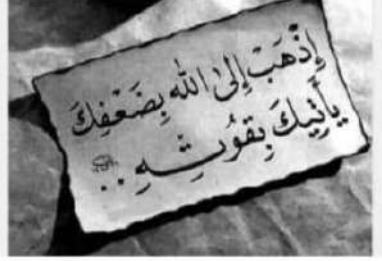 إِذْهَبْ إِلىَ الله بِضَعْفِكَ
يأَتِيكَ بِقُوَّتِـــهِ ..